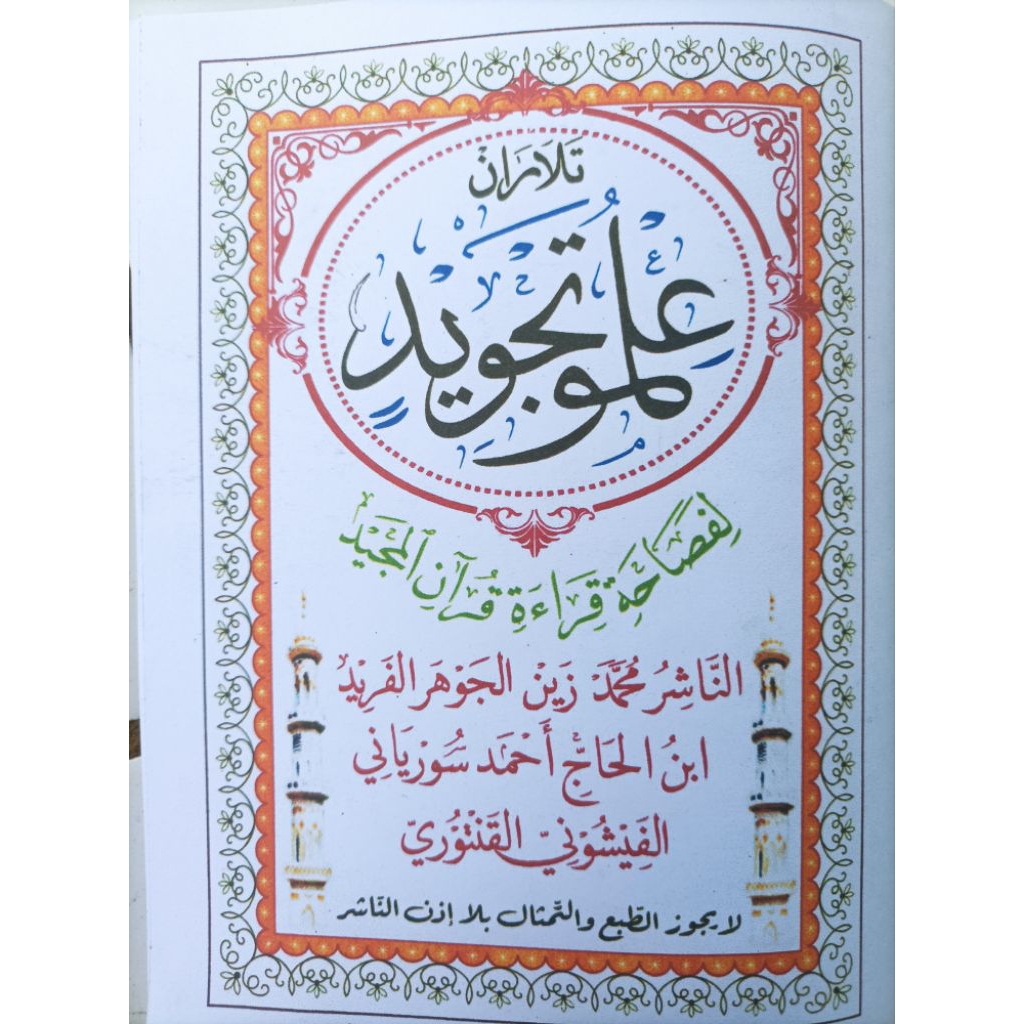 تلاتران
علمو تجويد
لِفَصَاحَةِ قِرَاءَةِ قُرْآنِ الْمَجِيْدِ
النَّاشِرُ مُحَمَّدْ زَيْنِ الجَوْهَرِ الفَرِيْدِ
ابنُ الحَاجِّ أَحْمَد سُوْرْيَانِي
الفَيْشُوْنِيّ القَنْتُوْرِيّ
لا يجوز الطّبع والتّمثال بلا إذن النّاشر